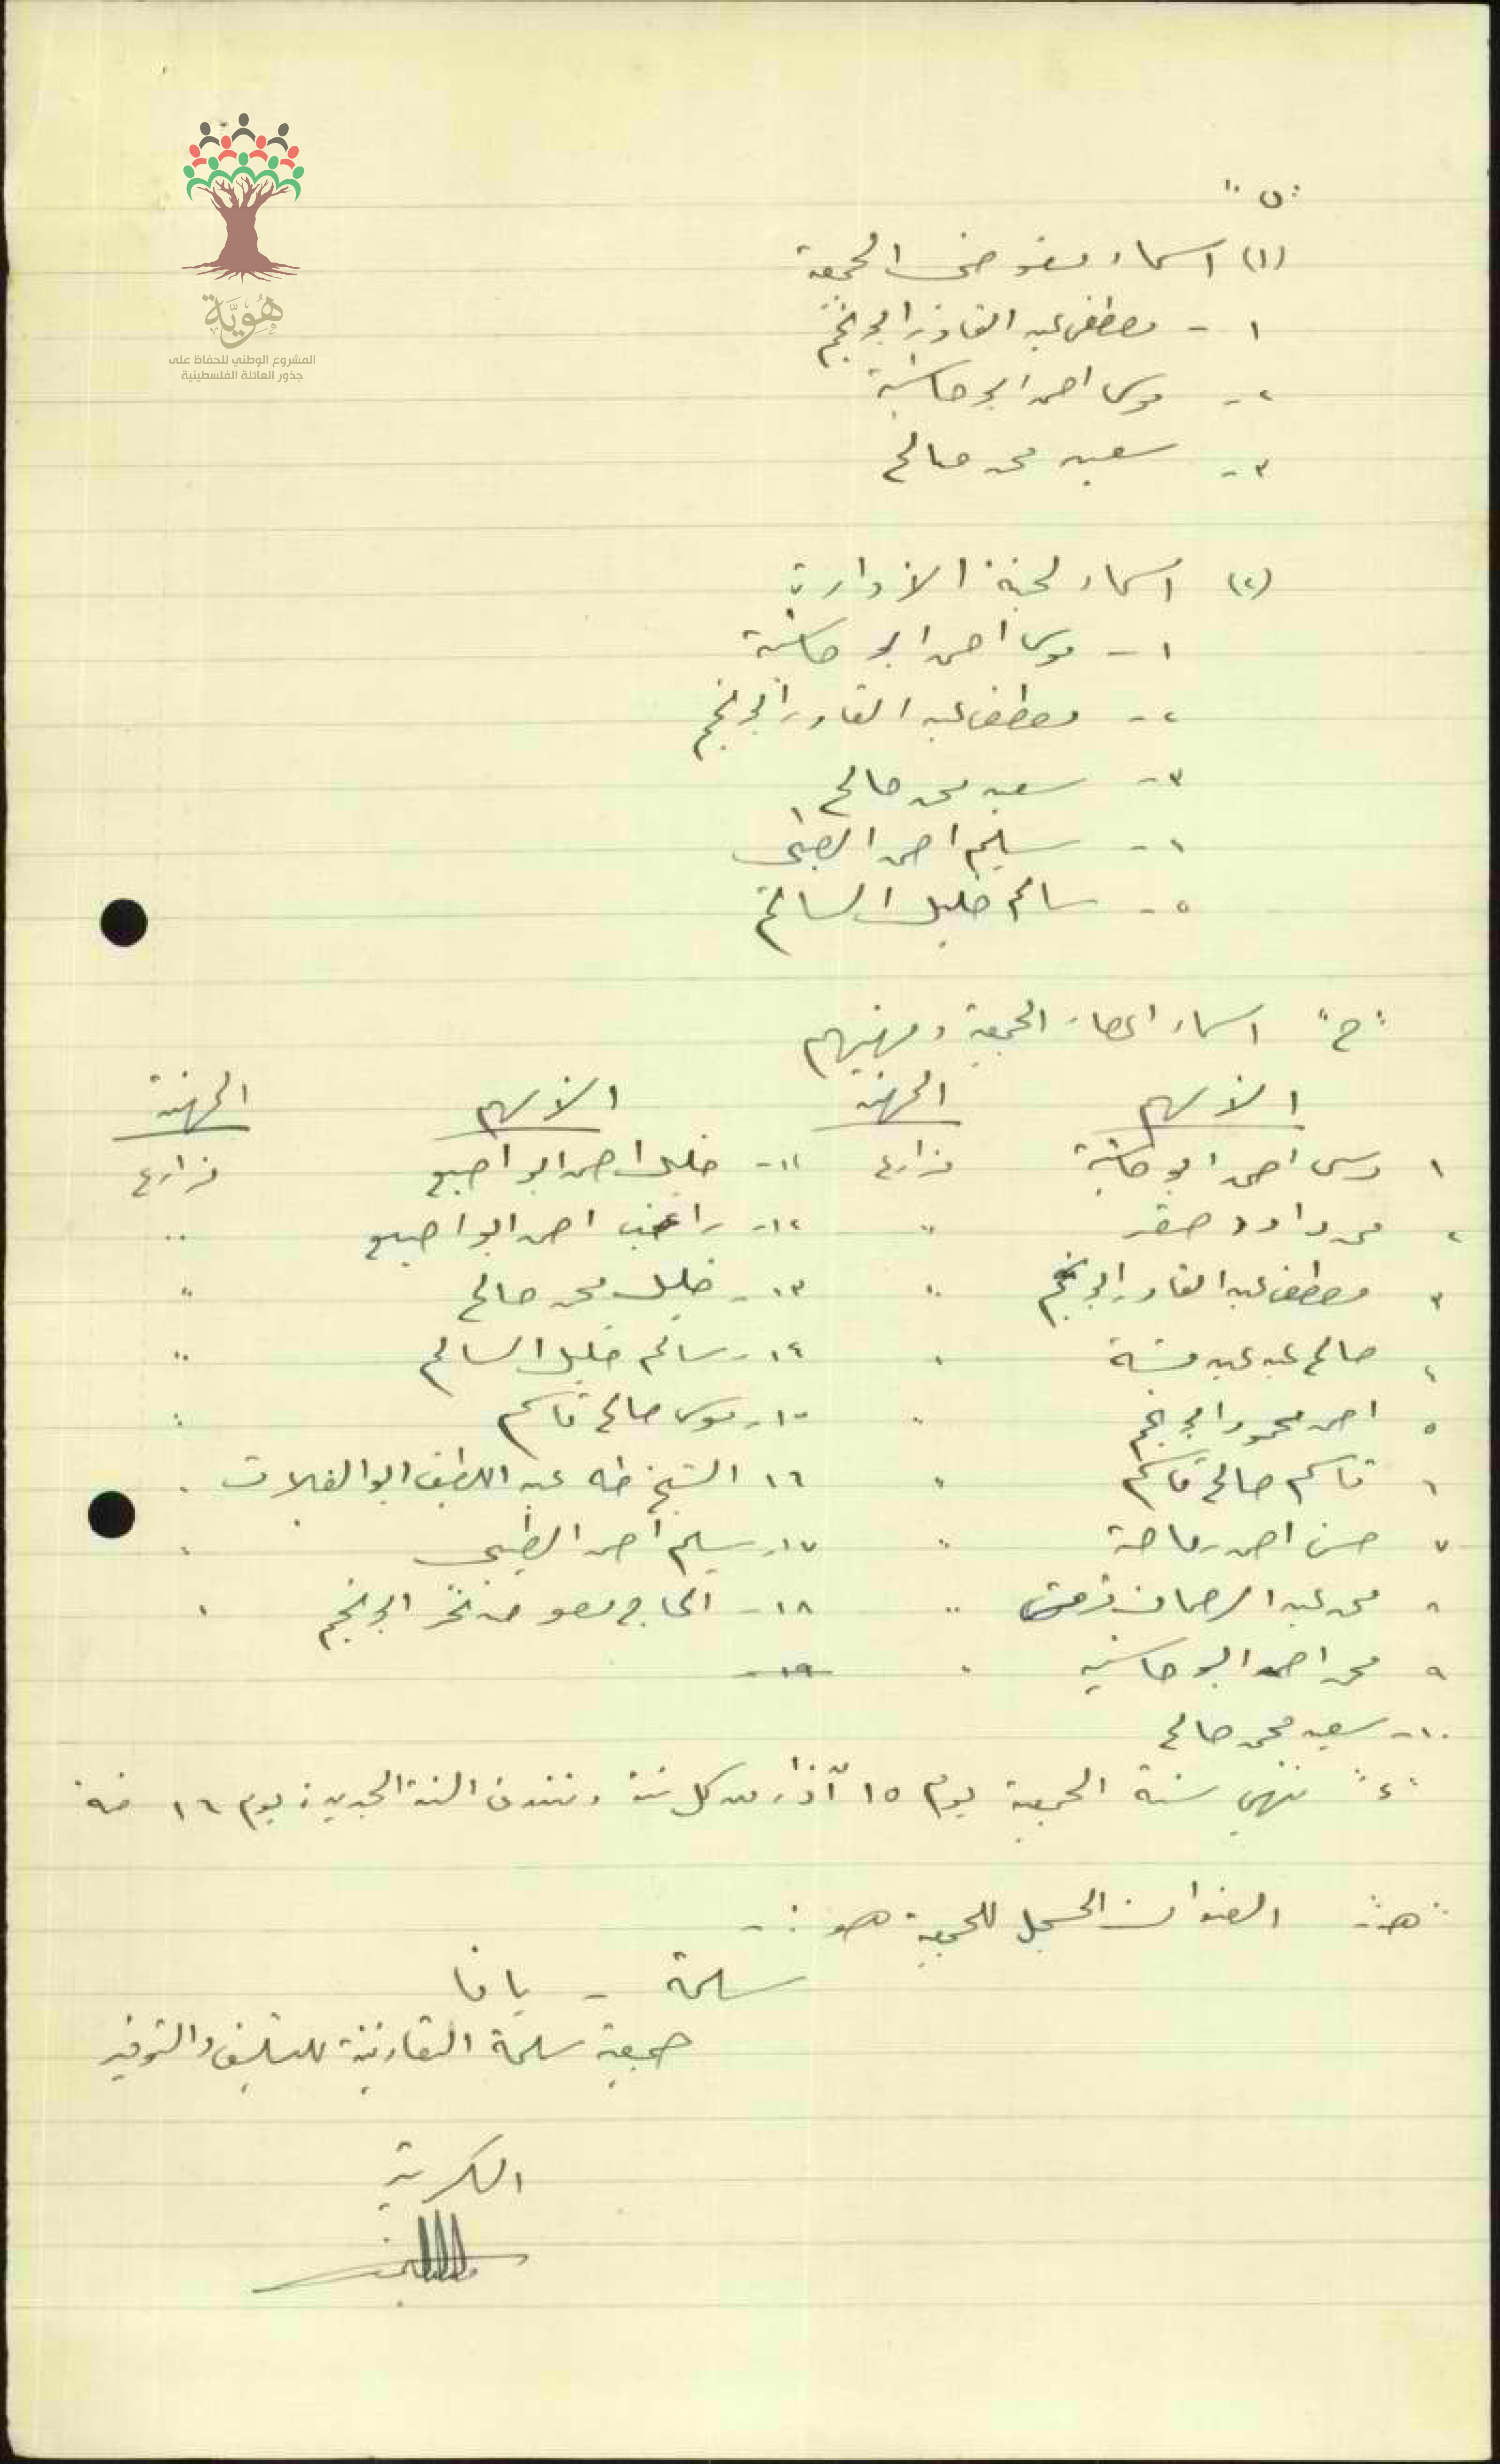 هُوِيَّة
المشروع الوطني للحفاظ على
جذور العائلة الفلسطينية
(١) اسماء مفوضي الجمعية
١ - مصطفى عبد القادر ابو نجم
٢ - موسى احمد ابو حاشية
٣ - سعيد محمد صالح
(٢) اسماء لجنة الادارة
١ - موسى احمد ابو حاشية
٢ - مصطفى عبد القادر ابو نجم
٣ - سعيد محمد صالح
٤ - سليم احمد الطيبي
٥ - سالم خليل السالم
"ج" اسماء اعضاء الجمعية ومهنهم
الاسم المهنة الاسم المهنة
١ موسى احمد ابو حاشية مزارع ١١ - خليل احمد ابو اصبع مزارع
٢ محمد داود صقر " ١٢ - راغب احمد ابو اصبع "
٣ مصطفى عبد القادر ابو نجم " ١٣ - خليل محمد صالح "
٤ صالح عبد " ١٤ - سالم خليل السالم "
٥ احمد محمود ابو نجم " ١٥ - موسى صالح قاسم "
٦ قاسم صالح قاسم " ١٦ الشيخ طه عبد اللطيف ابو الفلات "
٧ حسن احمد " ١٧ - سليم احمد الطيبي "
٨ محمد عبد الرحمان " ١٨ - الحاج ابو نجم "
٩ محمد احمد ابو حاشيه " ١٩
١٠ - سعيد محمد صالح
"د" تنتهي سنة الجمعية يوم ١٥ آذار من كل سنة وتبتدئ السنة الجديدة يوم ١٦ منه
"هـ" العنوان المسجل للجمعية هو :-
سلمة - يافا
جمعية سلمة التعاونية للتسليف والتوفير
السكرتير